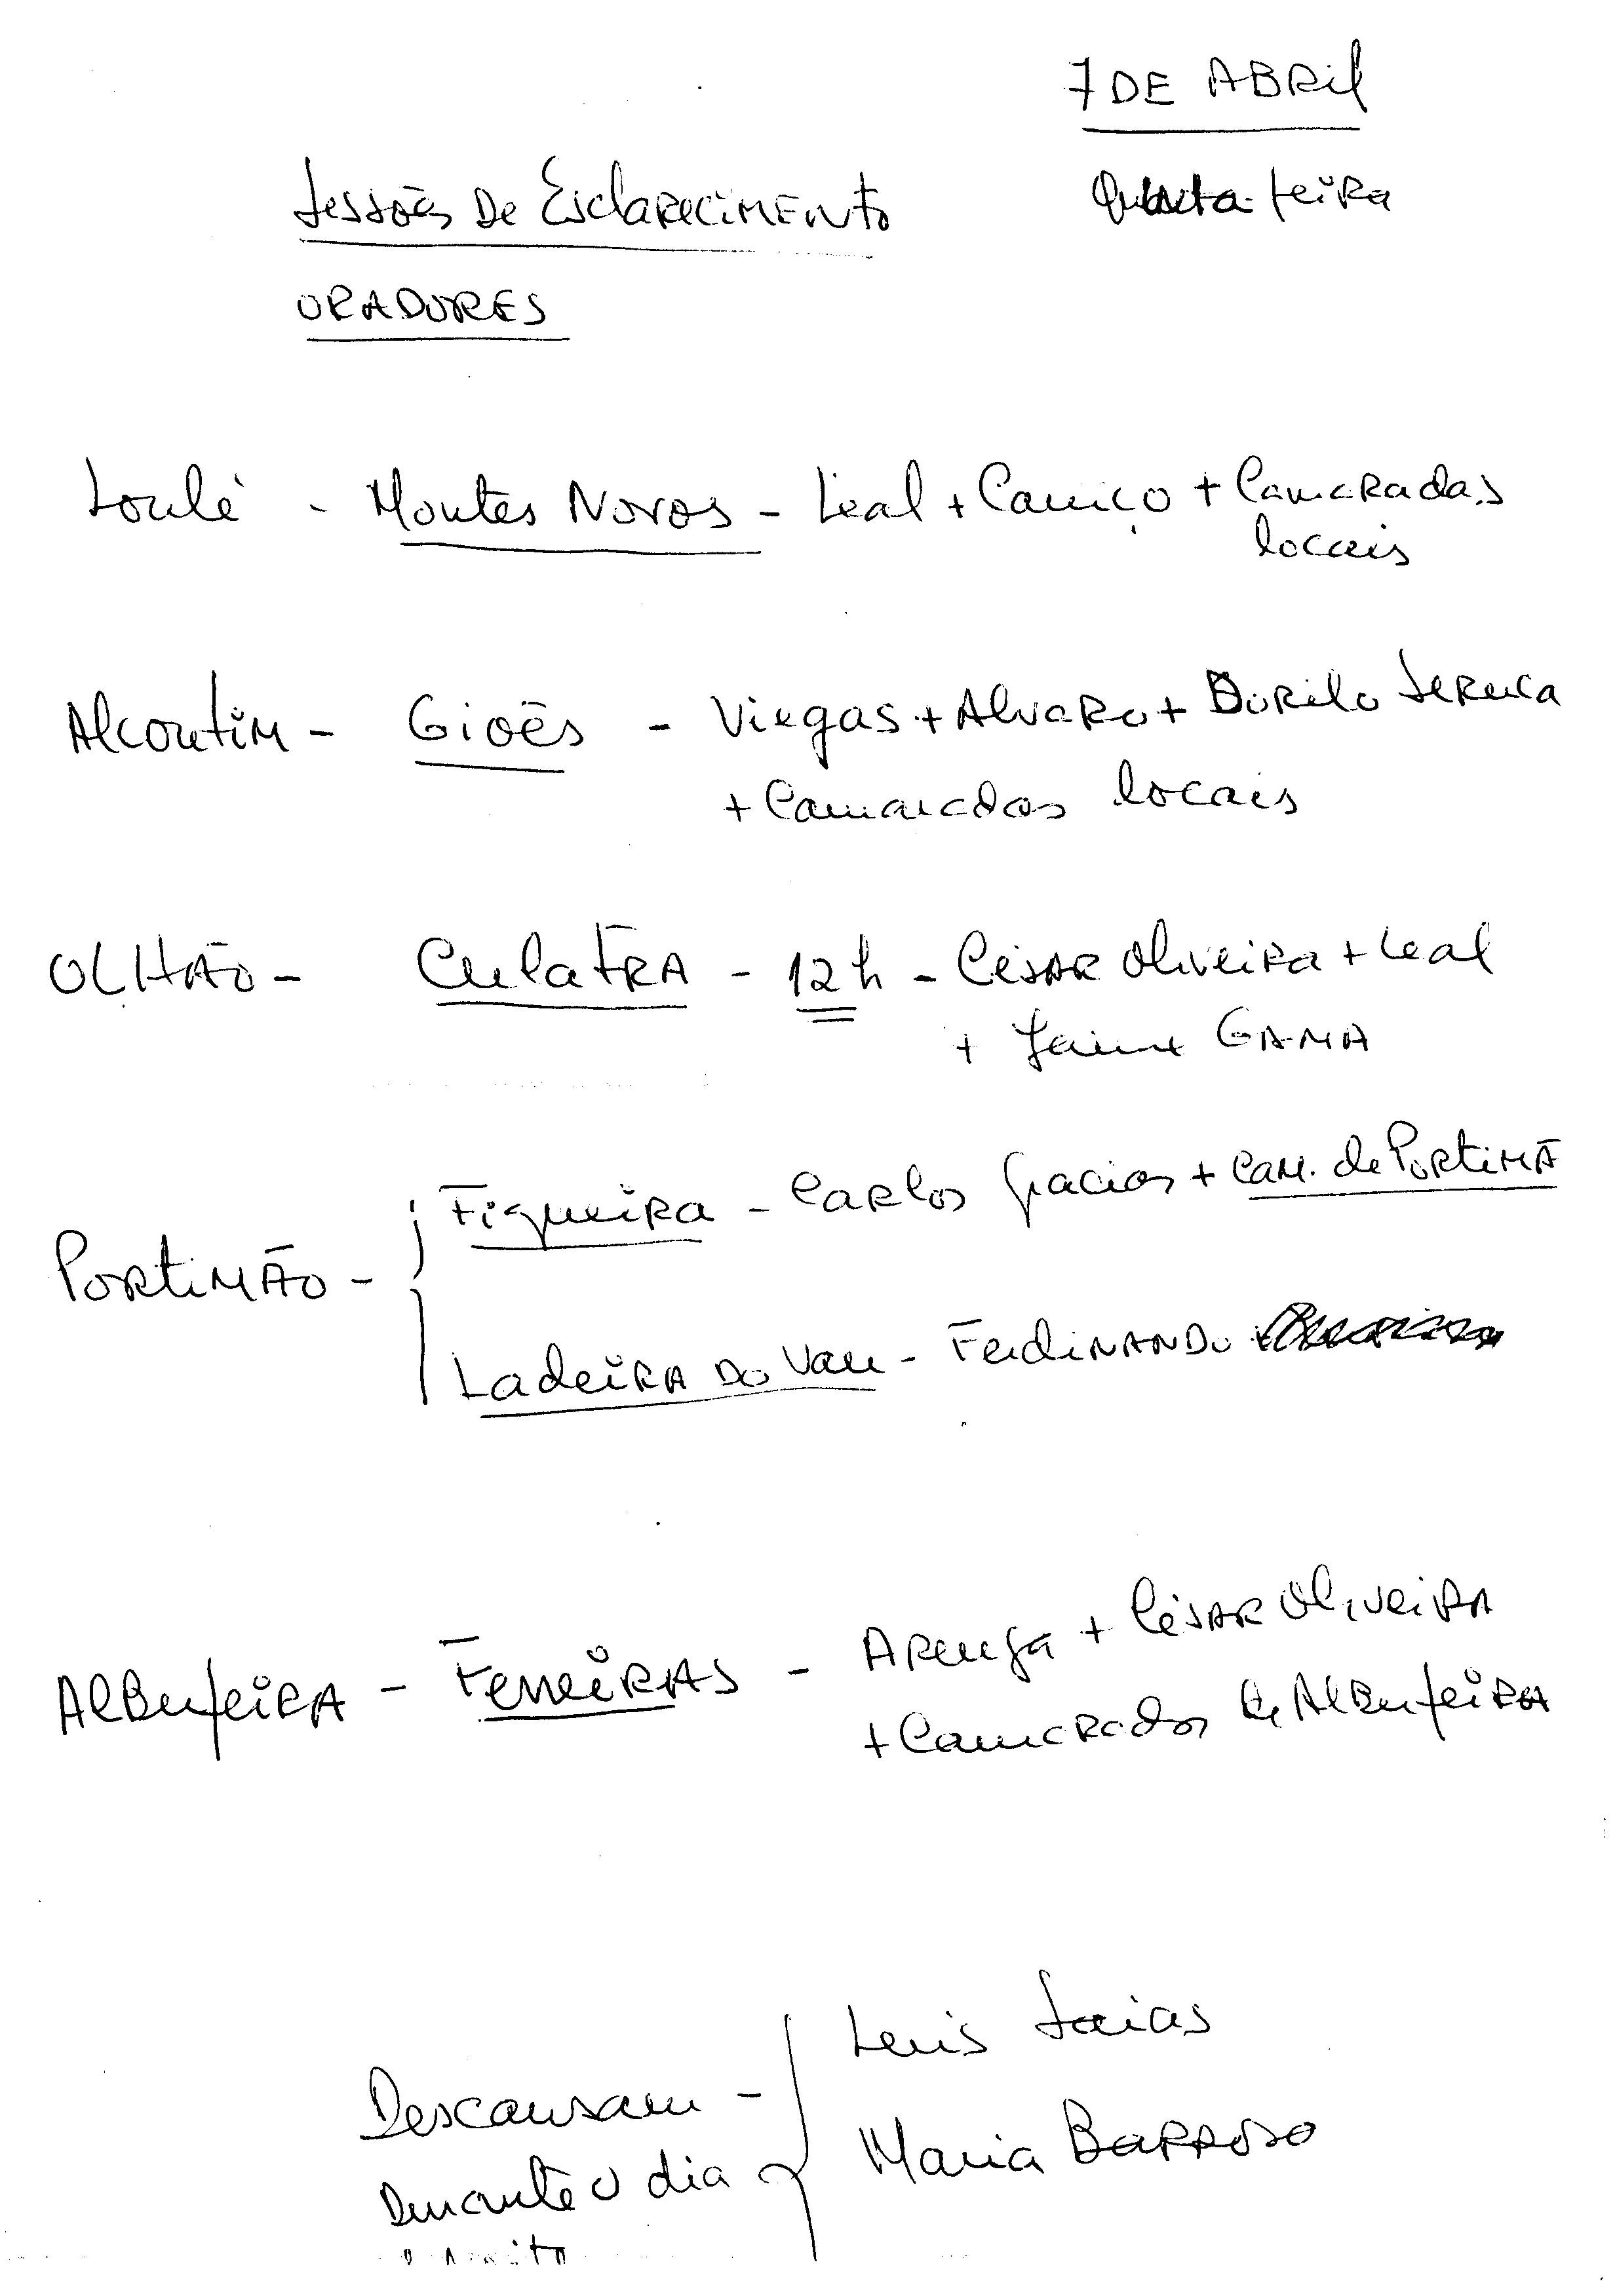 7 DE ABRil
Quinta-feira
Sessões De EsclARECiMENto
ORADORES
Loulé - Montes Novos - Leal + Caniço + CamaRadas
locais
AlcoutiM - Giões - Viegas + AlvaRo + DuRilo SeRuca
+ Camaradas locais
OLHÃO - CulatRA - 12 h - CésAR OliveiRa + Leal
+ Jaime GAMA
PoRtiMÃo -
FigueiRa - CaRlos Gracias + CAM. de PoRtiMÃ
LadeiRA Do Vau - FerdiNANDo
AlBufeiRA - FerreiRAS - ARenga + CésAR OliveiRA
+ CamaRadas de AlBufeiRA
Descansam -
Durante o dia
Luis Saias
Maria BaRRoso